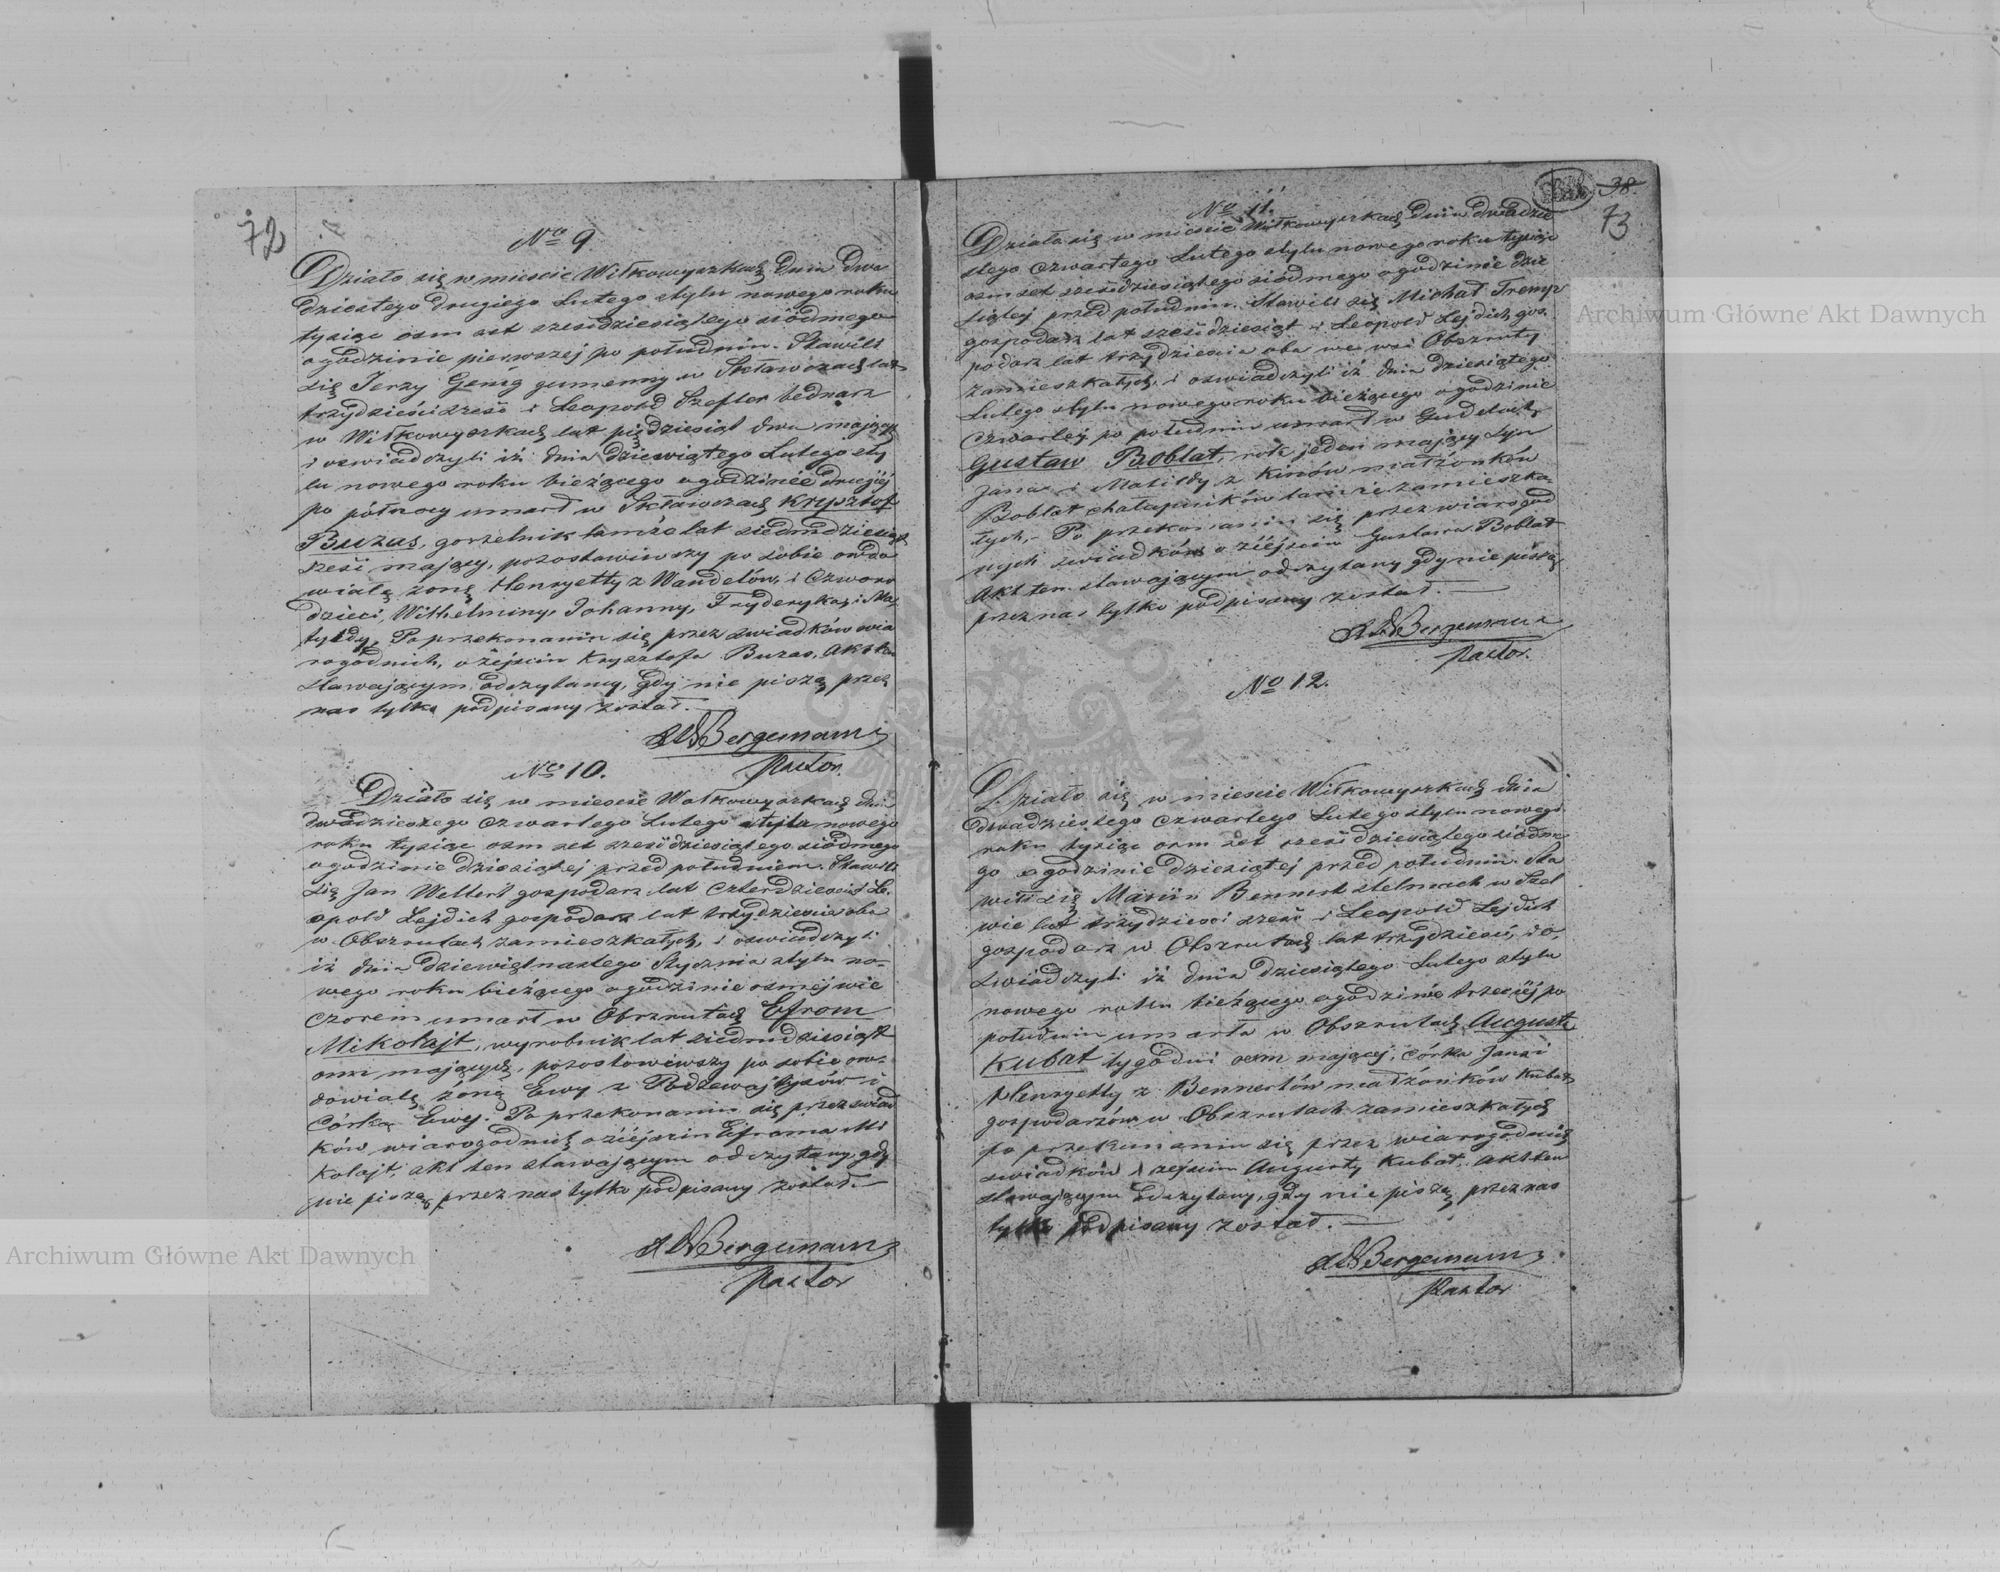 72
No 9
Działo się w mieście Wiłkowyszkach dnia dwu
dziestego drugiego Lutego stylu nowego roku
tysiąc osm set sześćdziesiątego siódmego
o godzinie pierwszej po południu. Stawili
się Jerzy Genig gumienny w Skławczach lat
trzydzieści sześć i Leopold Szefler bednarz
w Wiłkowyszkach lat pięćdziesiąt dwa mający
i oswiadczyli iż dnia dziewiątego Lutego sty
lu nowego roku bieżącego o godzinie drugiej
po północy umarł w Skławczach Krysztof
Buzas, gorzelnik tamże lat siedmdziesiąt
sześć mający, pozostawiwszy po sobie owdo
wiałą żonę Henryettę z Wandelów, i czworo
dzieci, Wilhelminy, Johanny, Fryderyka, i Ma
tyldy. Po przekonaniu się przez swiadków wia
rogodnich, o zejściu Krysztofa Buzas, Akt ten
stawającym odczytany, gdy nie piszą przez
nas tylko podpisany został.
Bergemann
Pastor.
No 10.
Działo się w mieście Wołkowyszkach dnia
dwudziestego czwartego Lutego stylu nowego
roku tysiąc osm set sześćdziesiątego siódmego
o godzinie dziesiątej przed południem. Stawili
się Jan Wellert gospodarz lat czterdzieści i Le
opold Lejdich gospodarz lat trzydzieście oba
w Obszrutach zamieszkałych, i oswiadczyli
iż dnia dziewiętnastego Stycznia stylu no-
wego roku bieżącego o godzinie osmej wie
czorem umarł w Obszrutach Efrom
Mikołajt, wyrobnik lat siedmdziesiąt
osm mający, pozostowiwszy po sobie ow-
dowiałę żonę Ewy z Podzewajtysów i
Córka Ewy. Po przekonaniu się przez swiad
ków wiarogodnich o zéjściu Efroma Mi
kołajt, akt ten stawającym odczytany gdy
nie piszą, przez nas tylko podpisany został.
Bergemann
Pastor
38
73
No 11.
Działo się w mieście Wiłkowyszkach dnia dwudzie
stego czwartego Lutego stylu nowego roku tysiąc
osm set sześćdziesiątego siódmego o godzinie dzie
siątej przed południu. Stawili się Michał Tremp
gospodarz lat sześćdziesiąt i Leopold Lejdich gos.
podarz lat trzydzieście oba we wsi Obszruty
zamieszkałych, i oswiadczyli iż dnia dziesiątego
Lutego stylu nowego roku bieżącego o godzinie
czwartej po południu umarł w Gudelach
Gustaw Boblat, rok jeden mający syn
Jana i Matildy z Kinów małżonków
Boblat chałupników tamże zamieszka
łych. Po przekonaniu się przez wiarogod
nych swiadków o zéjściu Gustawa Boblat
Akt ten stawającym odczytany gdy nie piszą
przez nas tylko podpisany został.
Bergemann
Pastor.
No 12.
Działo się w mieście Wiłkowyszkach dnia
dwudziestego czwartego Lutego stylu nowego
roku tysiąc osm set sześćdziesiątego siódme
go o godzinie dziesiątej przed południu. Sta
wili się Marcin Bennert stelmach w Szel
wie lat trzydzieści sześć i Leopold Lejdich
gospodarz w Obszrutach lat trzydzieści, i o,
swiadczyli iż dnia dziesiątego Lutego stylu
nowego roku bieżącego o godzinie trzeciej po
południu umarła w Obszrutach Augusta
Kubat tygodni osm mającej, córka Jana i
Henryetty z Bennertów małżonków Kubat,
gospodarzów w Obszrutach zamieszkałych
po przekonaniu się przez wiarogodnich
swiadków o zejściu Augusty Kubat, akt ten
stawającym odczytany, gdy nie piszą przez nas
tylko podpisany został.
Bergemann
Pastor
Archiwum Główne Akt Dawnych
Archiwum Główne Akt Dawnych